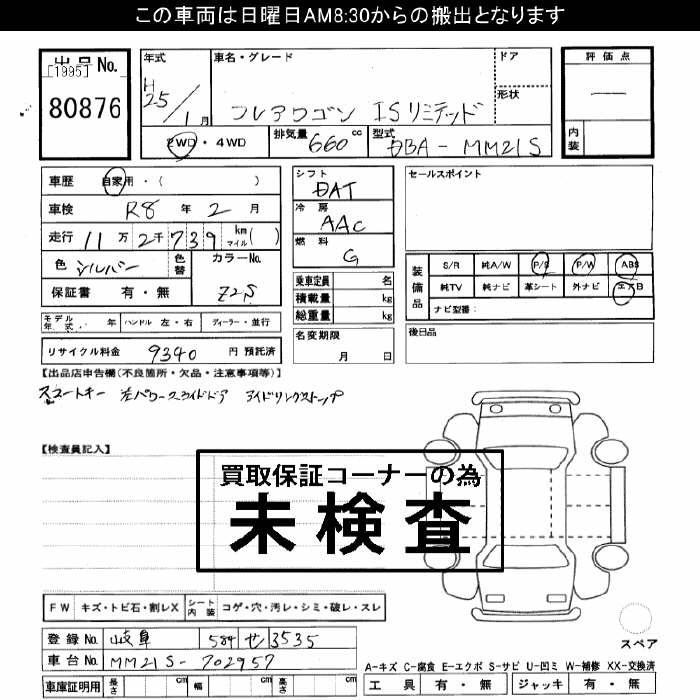 この車両は日曜日AM8:30からの搬出となります
出品No.
[1995]
80876
年式
H25/1月
車名・グレード
フレアワゴン ISリミテッド
ドア
形状
評価点
―
内装
2WD・4WD
排気量 660 cc
型式 DBA-MM21S
車歴 自家用・( )
車検 R8年2月
走行 11万2千739 km マイル( )
色 シルバー
色替
カラーNo.
Z2S
保証書 有・無
シフト
DAT
冷房
AAC
燃料
G
乗車定員 名
積載量 kg
総重量 kg
名変期限
月 日
セールスポイント
装備品
S/R 純A/W P/S P/W ABS
純TV 純ナビ 革シート 外ナビ エアB
ナビ型番:
後日品
モデル年式 年 ハンドル 左・右 ディーラー・並行
リサイクル料金 9340 円 預託済
【出品店申告欄(不良箇所・欠品・注意事項等)】
スマートキー 左パワースライドドア アイドリングストップ
【検査員記入】
買取保証コーナーの為
未検査
FW キズ・トビ石・割レX シート内装 コゲ・穴・汚レ・シミ・破レ・スレ
登録No. 岐阜 584 せ 3535
車台No. MM21S-702957
車庫証明用 長さ cm 幅 cm 高さ cm
スペア
A-キズ C-腐食 E-エクボ S-サビ U-凹ミ W-補修 XX-交換済
工具 有・無 ジャッキ 有・無